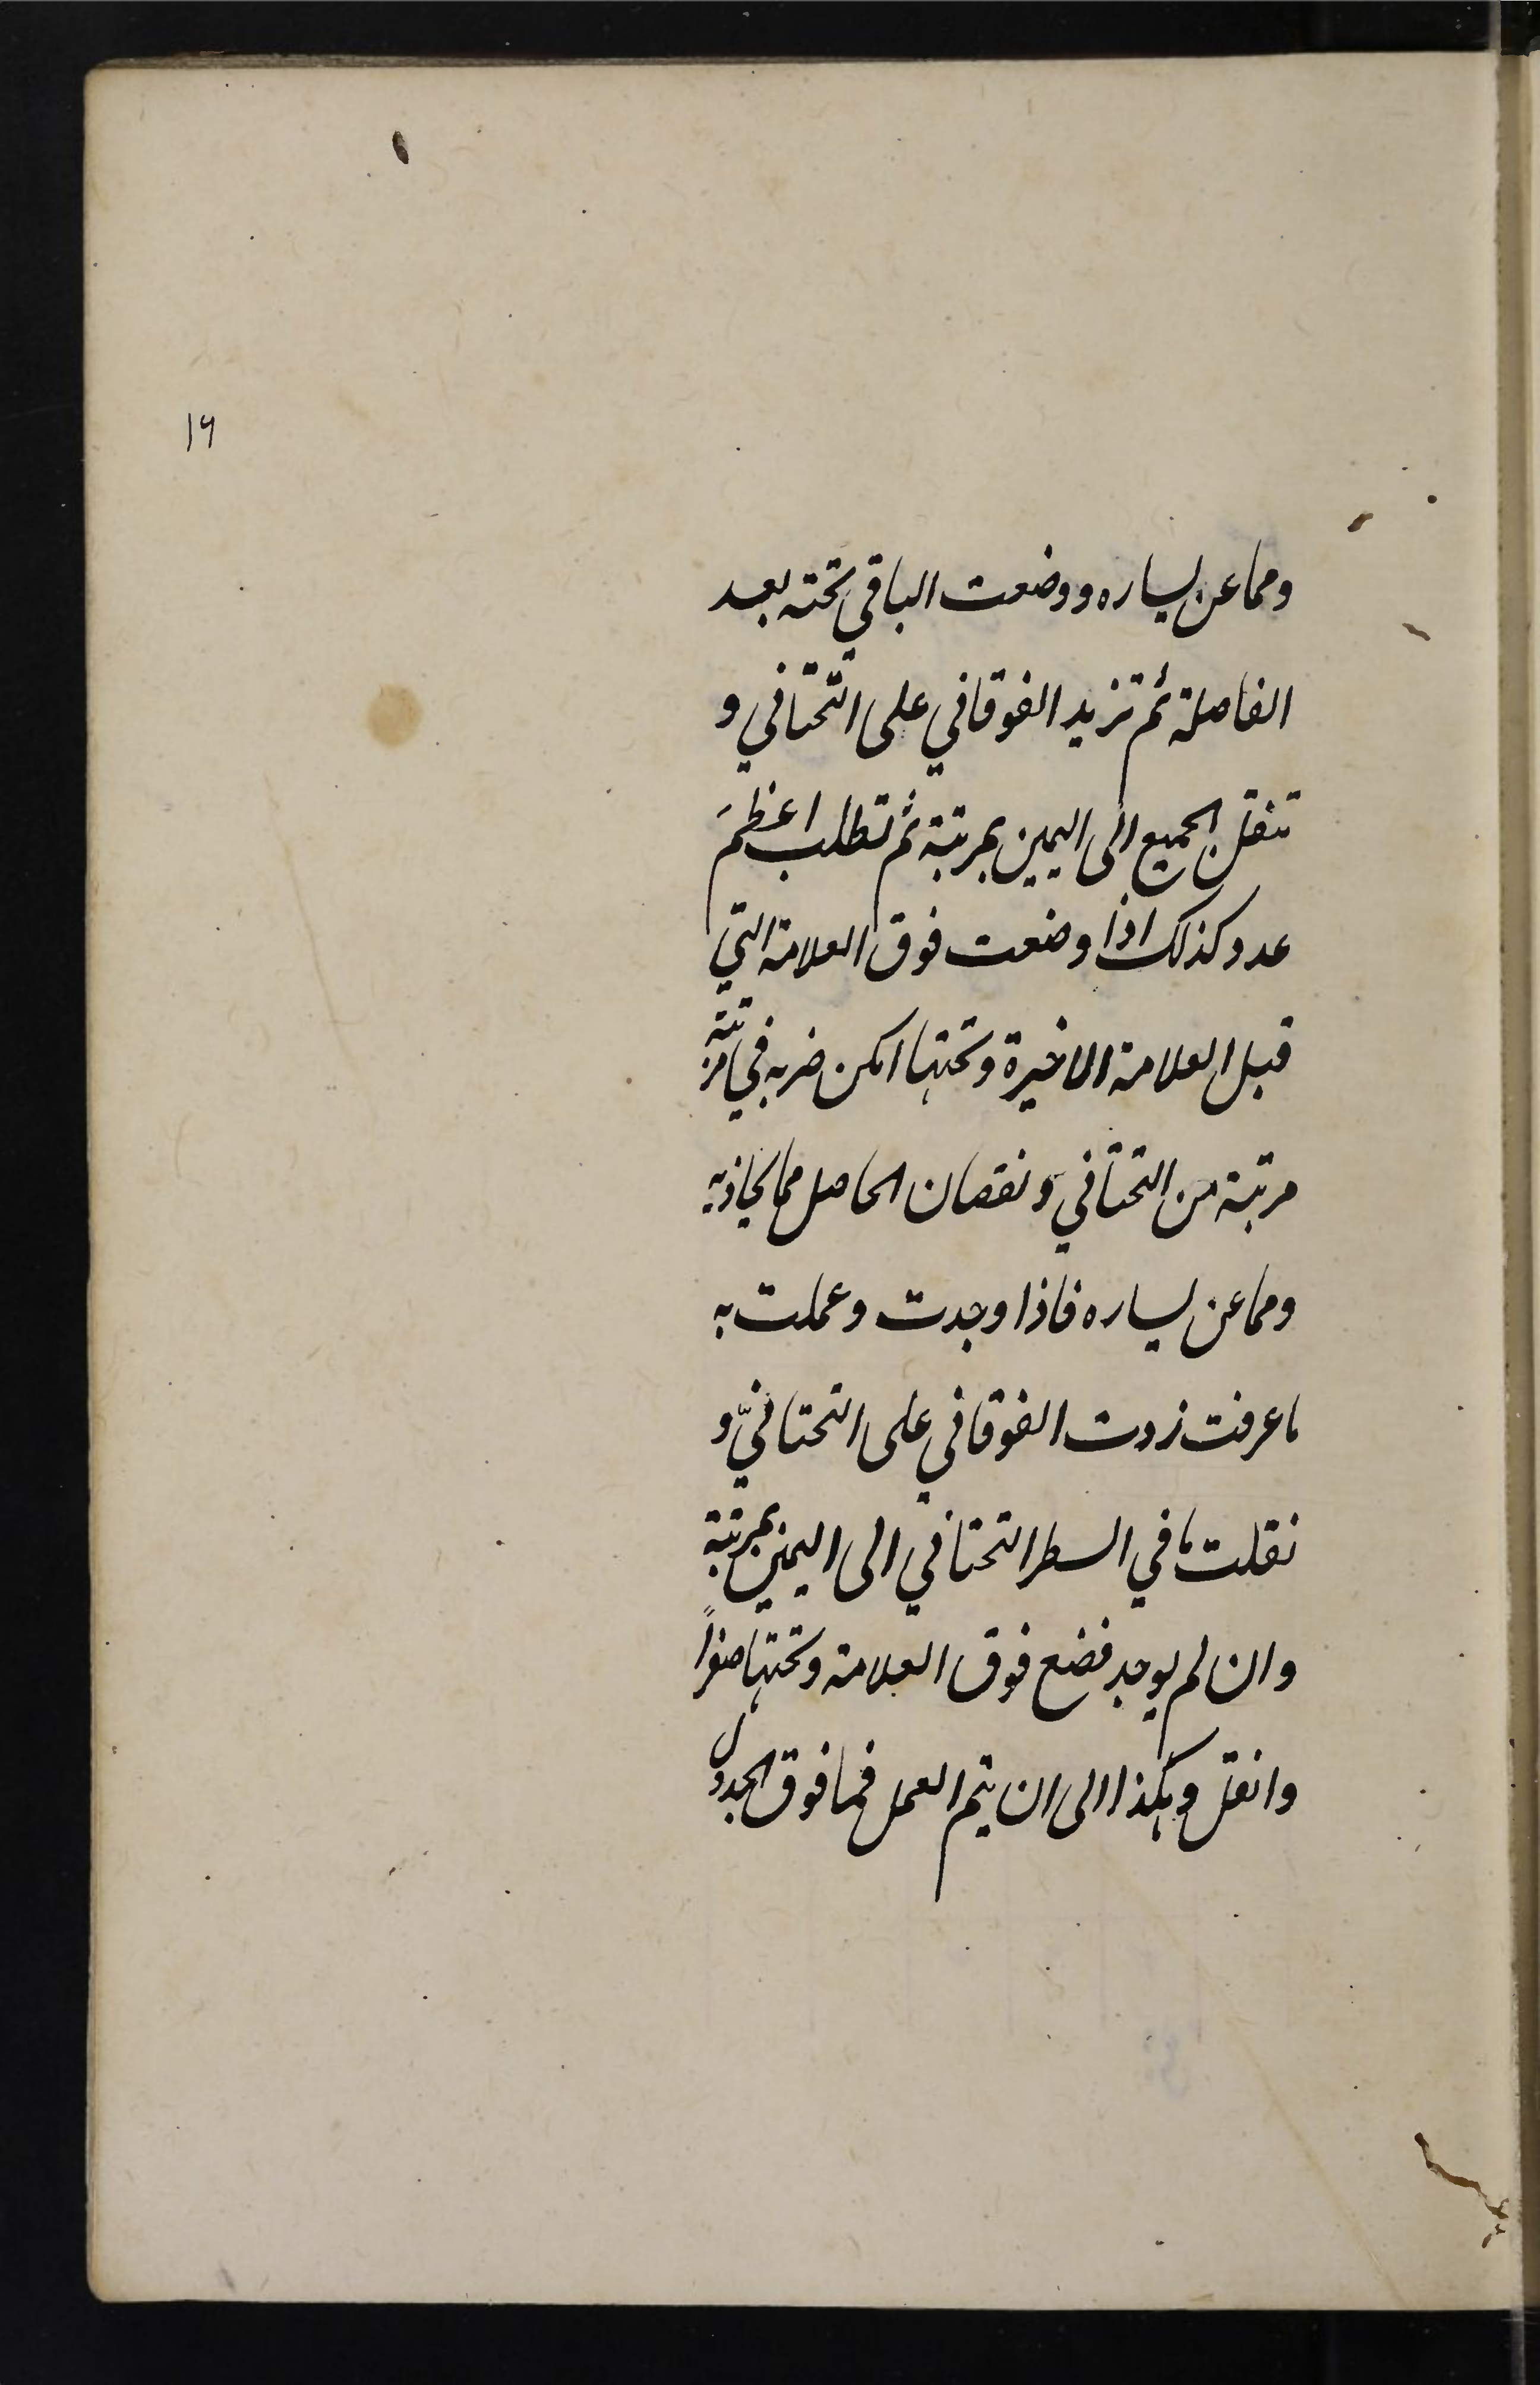 ١٦
ومما عن يساره ووضعت الباقي تحته بعد
الفاصلة ثم تزيد الفوقاني على التحتاني و
تنقل الجميع الى اليمين بمرتبة ثم تطلب اعظمَ
عدد كذلك اذا وضعت فوق العلامة التي
قبل العلامة الاخيرة وتحتها امكن ضربه في مرتبة
مرتبة من التحتاني ونقصان الحاصل مما يحاذيه
ومما عن يساره فاذا وجدت وعملت به
ما عرفت زدت الفوقاني على التحتانيّ و
نقلت ما في السطر التحتاني الى اليمين بمرتبة
وان لم يوجد فضع فوق العلامة وتحتها صفراً
وانقل وهكذا الى ان يتم العمل فما فوق الجدول